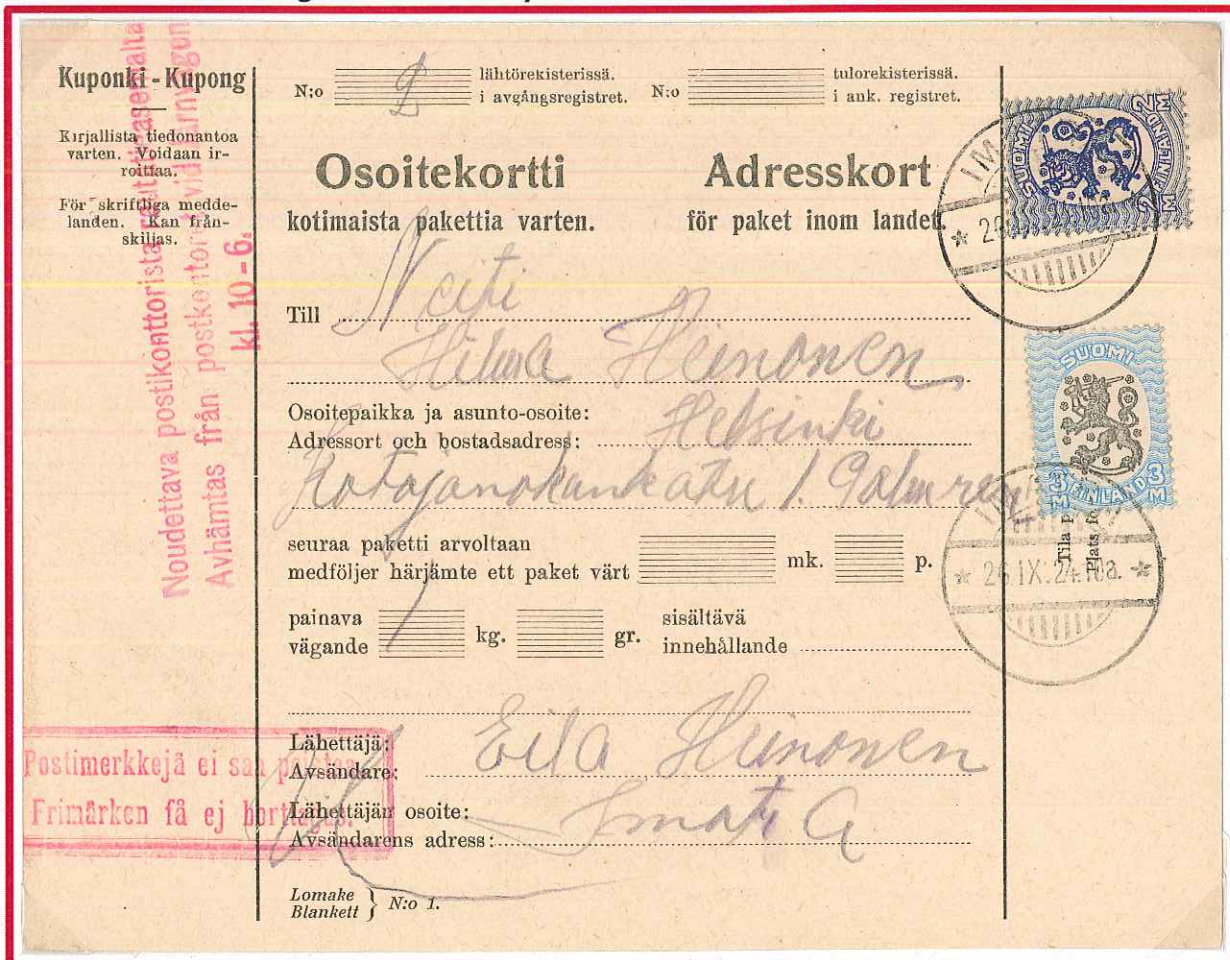 Kuponki - Kupong
Kirjallista tiedonantoa
varten. Voidaan ir-
roittaa.
För skriftliga medde-
landen. Kan från-
skiljas.
Noudettava postikonttorista
Avhämtas från postkontor
kl. 10-6.
N:o 2 lähtörekisterissä.
i avgångsregistret.
N:o tulorekisterissä.
i ank. registret.
Osoitekortti
kotimaista pakettia varten.
Adresskort
för paket inom landet.
Till Neiti
Hilma Heinonen
Osoitepaikka ja asunto-osoite:
Adressort och bostadsadress: Helsinki
1.
seuraa paketti arvoltaan
medföljer härjämte ett paket värt mk. p.
painava
vägande kg. gr.
sisältävä
innehållande
Lähettäjä:
Avsändare: Eila Heinonen
Lähettäjän osoite:
Avsändarens adress: Imatra
Lomake
Blankett } N:o 1.
Postimerkkejä ei saa poistaa.
Frimärken få ej borttagas.
SUOMI
2 M
FINLAND
2 M
SUOMI
3 M FINLAND 3 M
Tila
Plats
* 26.IX.24.10a. *